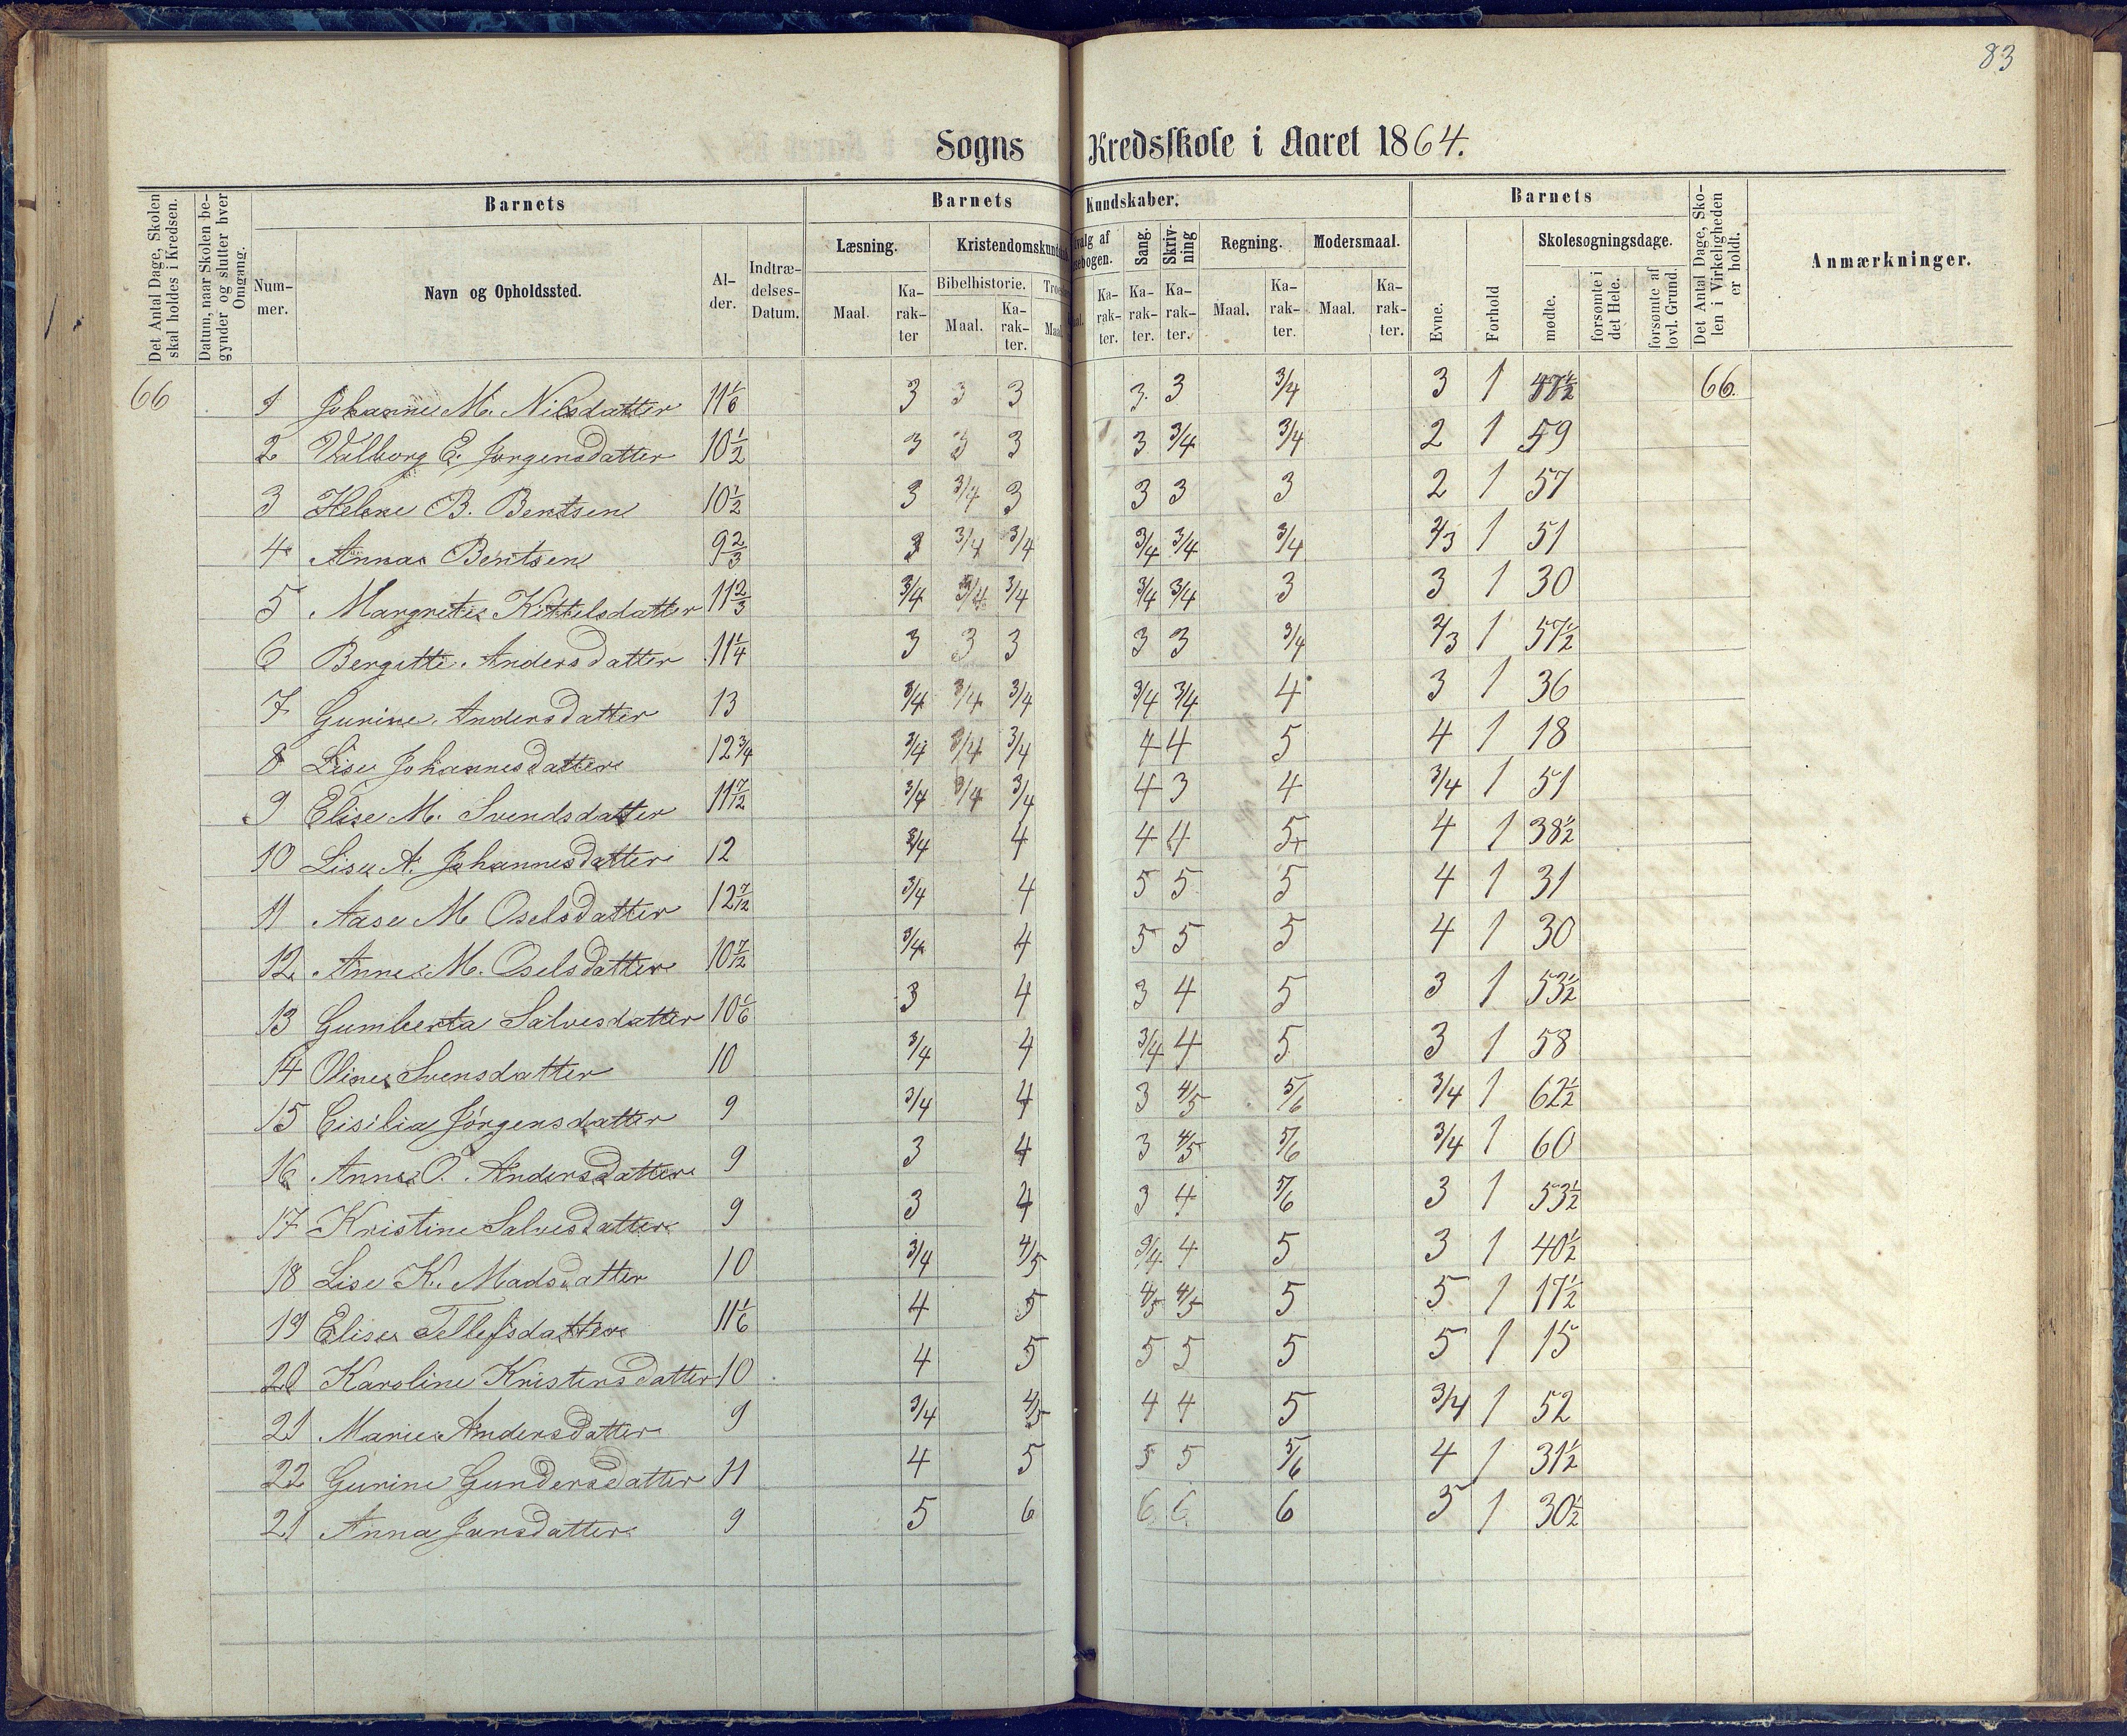 83
Sogns Kredsskole i Aaret 1864.
Det Antal Dage, Skolen skal holdes i Kredsen.
Datum, naar Skolen begynder og slutter hver Omgang.
Barnets
Nummer.
Navn og Opholdssted.
Alder.
Indtrædelses-Datum.
Barnets Kundskaber.
Læsning.
Maal.
Karakter
Kristendomskunds
Bibelhistorie.
Maal.
Karakter.
Troes
Maal
valg af sebogen.
Karakter.
Sang.
Karakter.
Skrivning
Karakter.
Regning.
Maal.
Karakter.
Modersmaal.
Maal.
Karakter.
Barnets
Evne.
Forhold
Skolesøgningsdage.
mødte.
forsømte i det Hele.
forsømte af lovl. Grund.
Det Antal Dage, Skolen i Virkeligheden er holdt.
Anmærkninger.
66 1 Johanne M. Nilsdatter 11 1/6 3 3 3 3 3 3/4 3 1 66.
2 Valborg E. Jørgensdatter 10 1/2 3 3 3 3 3/4 3/4 2 1 59
3 Helene B. Bentsen 10 1/2 3 3/4 3 3 3 3 2 1 57
4 Anna Bentsen 9 2/3 3 3/4 3/4 3/4 3/4 3/4 2/3 1 51
5 Margrete Kittelsdatter 11 2/3 3/4 3/4 3/4 3/4 3/4 3 3 1 30
6 Bergitte Andersdatter 11 1/4 3 3 3 3 3 3/4 2/3 1 57 1/2
7 Gurine Andersdatter 13 3/4 3/4 3/4 3/4 3/4 4 3 1 36
8 Lise Johannesdatter 12 3/4 3/4 3/4 3/4 4 4 5 4 1 18
9 Elise M. Svendsdatter 11 7/12 3/4 3/4 3/4 4 3 4 3/4 1 51
10 Lise A. Johannesdatter 12 3/4 4 4 4 5+ 4 1 38 1/2
11 Aase M Oselsdatter 12 7/12 3/4 4 5 5 5 4 1 31
12 Anne M. Oselsdatter 10 7/12 3/4 4 5 5 5 4 1 30
13 Gumberta Salvesdatter 10 1/6 3 4 3 4 5 3 1 53 1/2
14 Oline Svensdatter 10 3/4 4 3/4 4 5 3 1 58
15 Cisilia Jörgensdatter 9 3/4 4 3 4/5 5/6 3/4 1 62 1/2
16 Anne O. Andersdatter 9 3 4 3 4/5 5/6 3/4 1 60
17 Kristine Salvesdatter 9 3 4 3 4 5/6 3 1 53 1/2
18 Lise K. Madsdatter 10 3/4 4/5 3/4 4 5 3 1 40 1/2
19 Elise Tellefsdatter 11 1/6 4 5 4/5 4/5 5 5 1 17 1/2
20 Karoline Kristensdatter 10 4 5 5 5 5 5 1 15
21 Marie Andersdatter 9 3/4 4/5 4 4 5 3/4 1 52
22 Gurine Gundersdatter 11 4 5 5 5 5/6 4 1 31 1/2
21 Anna Jansdatter 9 5 6 6 6 6 5 1 30 1/2